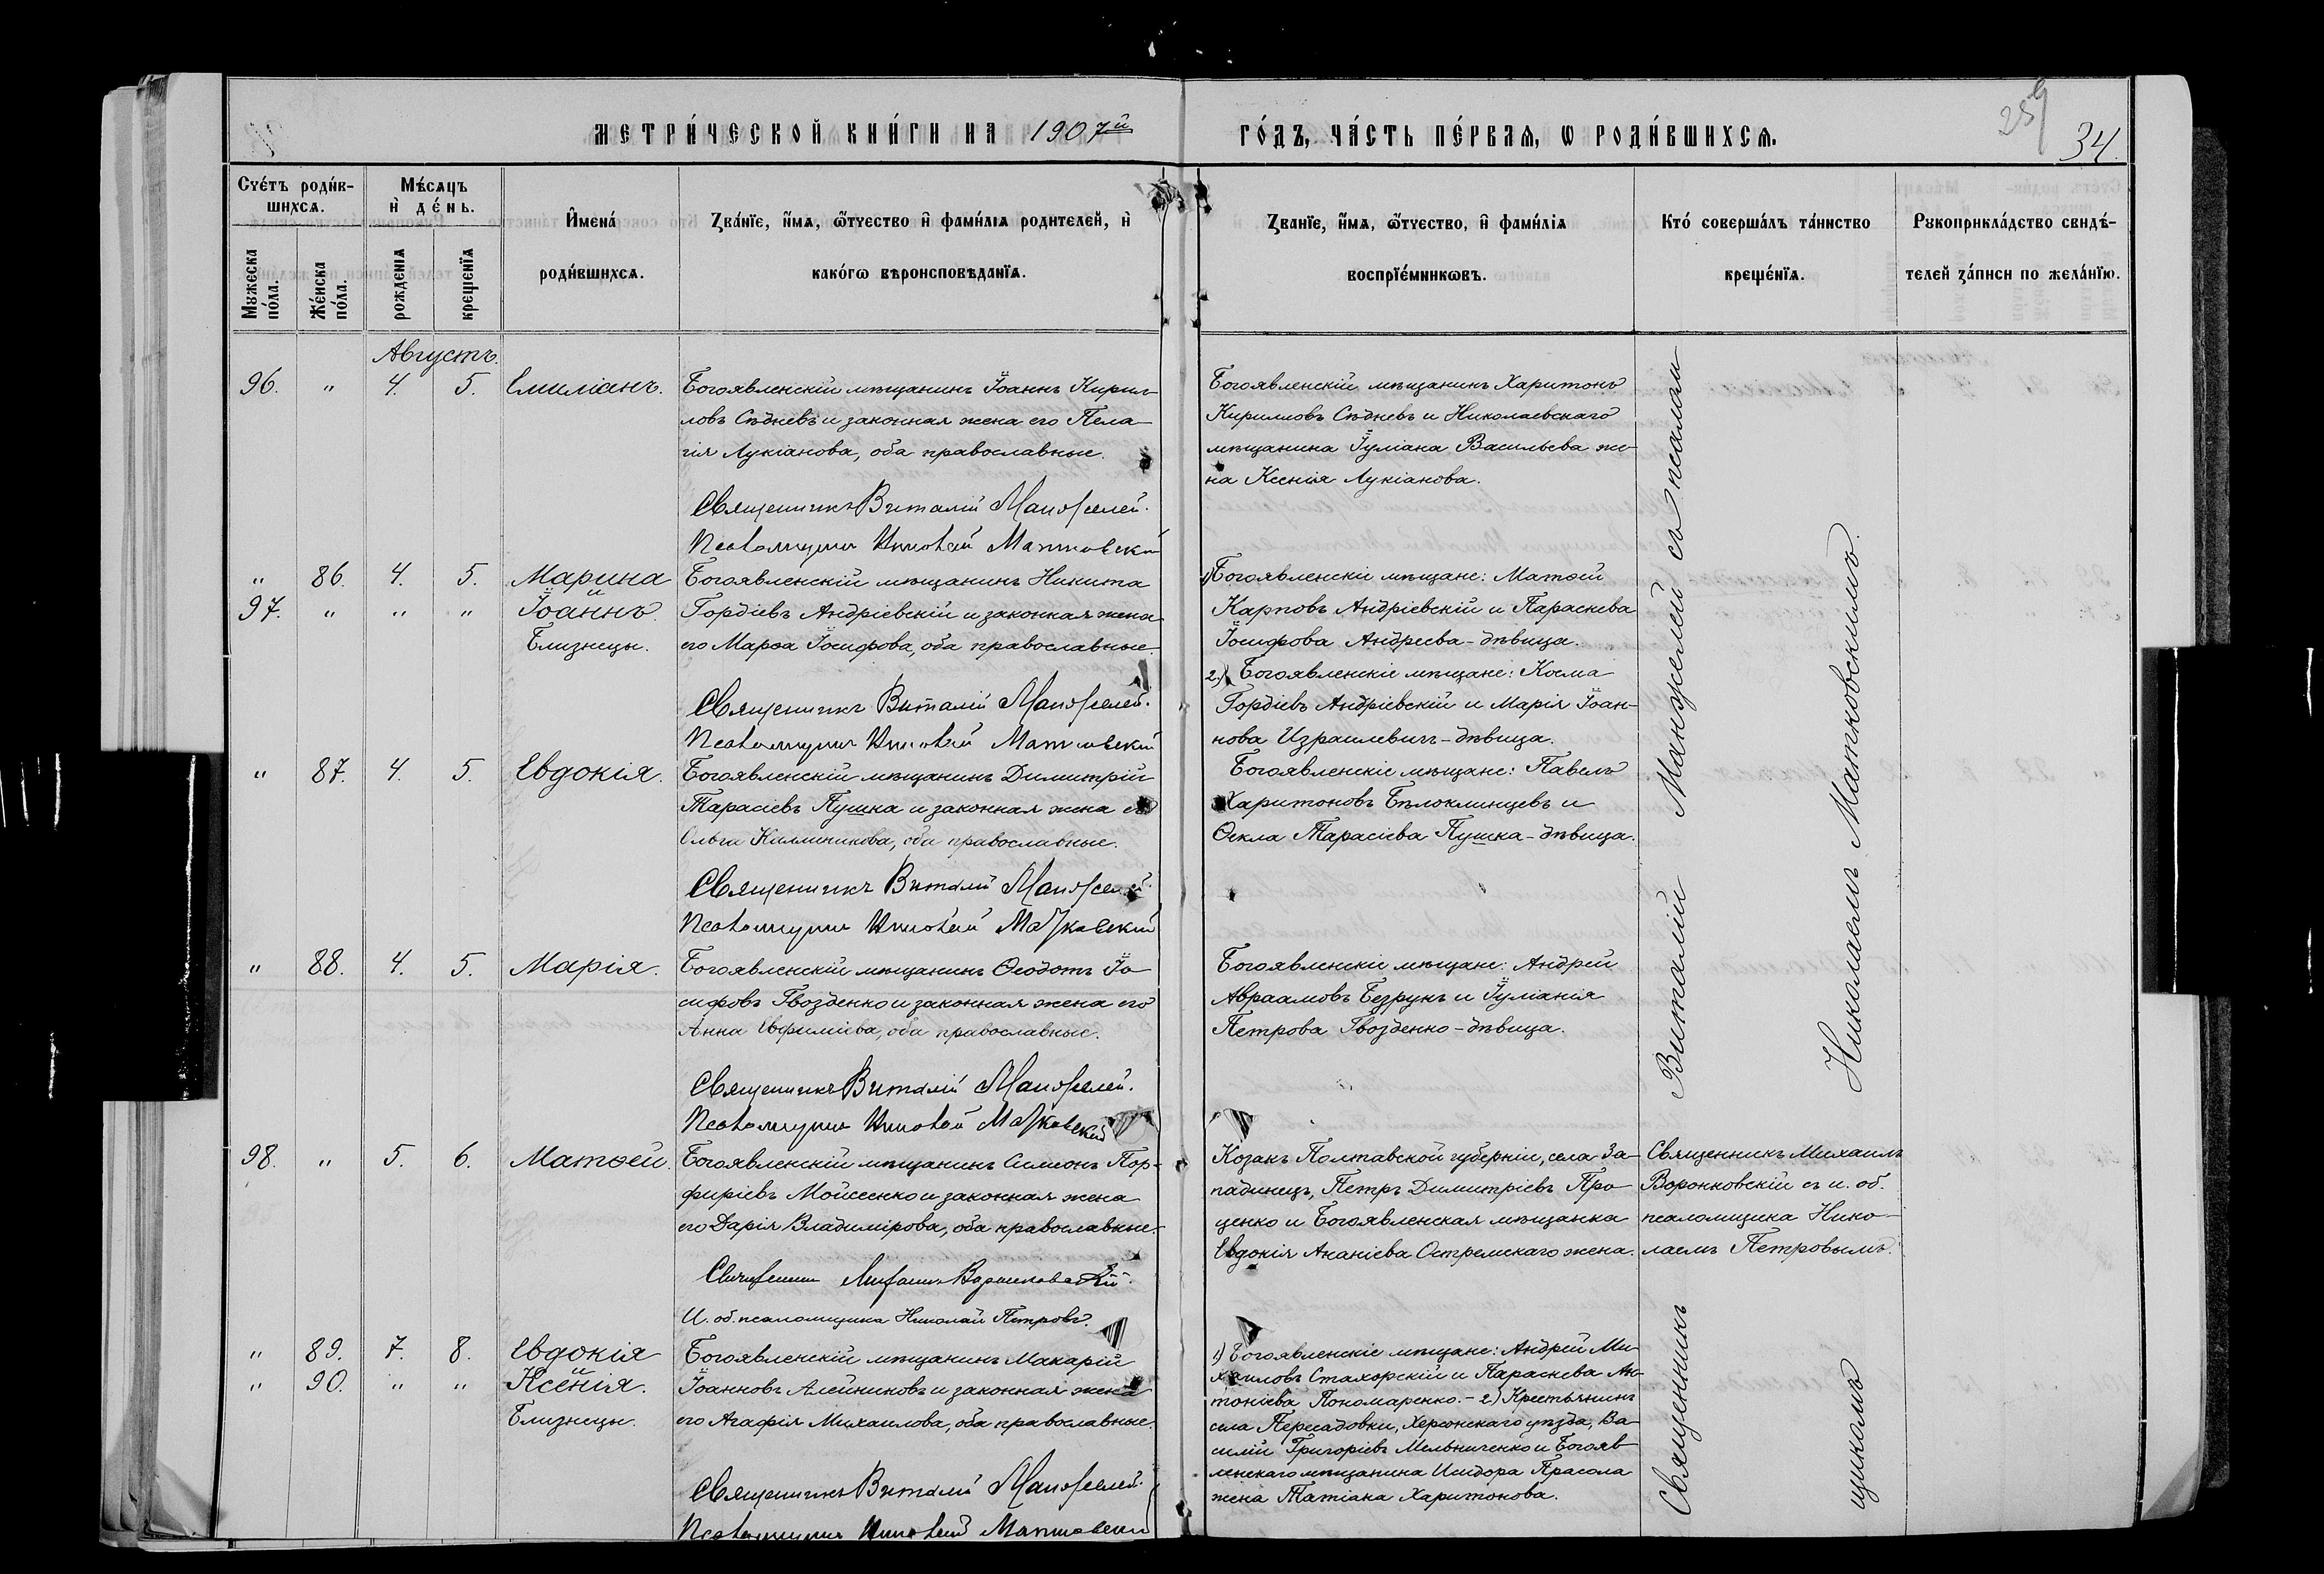 МЕТРИ́ЧЕСКОЙ КНИ́ГИ НА 1907й
ГО́ДЪ, ЧА́СТЬ ПЕ́РВАѦ, Ѡ РОДИ́ВШИХСѦ.
259
34.
Сче́тъ роди́в-
шихсѧ.
Мꙋжеска
по́ла.
Же́нска
по́ла.
Мѣ́сѧцъ
и҆ де́нь.
рожденїѧ
крещенїѧ
И҆мена́
роди́вшихсѧ.
Зва́нїе, и҆́мѧ, ѻ҆́тчество и҆ фами́лїѧ родителей, и҆
како́гѡ вѣроисповѣданїѧ.
Званїе, и҆́мѧ, ѻ҆́тчество, и҆ фами́лїѧ
воспрїе́мникѡвъ.
Кто́ соверша́лъ та́инство
креще́нїѧ.
Рꙋкоприкла́дство свидѣ́-
телей за́писи по жела́нїю.
Августъ.
96. " 4. 5. Емиліанъ.
Богоявленскій мѣщанинъ Іоаннъ Кирил-
ловъ Сѣдневъ и законная жена его Пела-
гія Лукіанова, оба православные.
Священникъ Виталій Манжелей.
Псаломщикъ Николай Матковскій
Богоявленскій мѣщанинъ Харитонъ
Кирилловъ Сѣдневъ и Николаевскаго
мѣщанина Іуліана Васильева же-
на Ксенія Лукіанова.
" 86. 4. 5. Марина
97. " " " Іоаннъ.
Близнецы.
Богоявленскій мѣщанинъ Никита
Гордіевъ Андріевскій и законная жена
его Марѳа Іосифова, оба православные.
Священникъ Виталій Манжелей.
Псаломщикъ Николай Матковскій
1) Богоявленскіе мѣщане: Матѳей
Карповъ Андріевскій и Параскева
Іосифова Андреева - дѣвица.
2) Богоявленскіе мѣщане: Косма
Гордіевъ Андріевскій и Марія Іоан-
нова Израилевичъ - дѣвица.
" 87. 4. 5. Евдокія.
Богоявленскій мѣщанинъ Димитрій
Тарасіевъ Пушка и законная жена его
Ольга Каллиникова, оба православные.
Священникъ Виталій Манжелей.
Псаломщикъ Николай Матковскій
Богоявленскіе мѣщане: Павелъ
Харитоновъ Бѣлоклинцевъ и
Ѳекла Тарасіева Пушка - дѣвица.
" 88. 4. 5. Марія.
Богоявленскій мѣщанинъ Ѳеодотъ Іо-
сифовъ Гвозденко и законная жена его
Анна Евфиміева, оба православные.
Священникъ Виталій Манжелей.
Псаломщикъ Николай Матковскій
Богоявленскіе мѣщане: Андрей
Авраамовъ Безрукъ и Іуліанія
Петрова Гвозденко - дѣвица.
98. " 5. 6. Матѳей.
Богоявленскій мѣщанинъ Симеонъ Пор-
фиріевъ Мойсеенко и законная жена
его Дарія Владимірова, оба православные.
Священникъ Михаилъ Воронковскій.
И. об. псаломщика Николай Петровъ.
Козакъ Полтавской губерніи, села За-
падинецъ, Петръ Димитріевъ Про-
ценко и Богоявленская мѣщанка
Евдокія Ананіева Остремскаго жена.
Священникъ Михаилъ
Воронковскій съ и. об.
псаломщика Нико-
лаемъ Петровымъ.
" 89. 7. 8. Евдокія
" 90. " " Ксенія.
Близнецы.
Богоявленскій мѣщанинъ Макарій
Іоанновъ Алейниковъ и законная жена
его Агафія Михаилова, оба православные.
Священникъ Виталій Манжелей.
Псаломщикъ Николай Матковскій
1) Богоявленскіе мѣщане: Андрей Ми-
хаиловъ Стахорскій и Параскева Ан-
тоніева Пономаренко. - 2) Крестьянинъ
села Пересадовки, Херсонскаго уѣзда, Ва-
силій Григоріевъ Мельниченко и Богояв-
ленскаго мѣщанина Исидора Прасола
жена Татіана Харитонова.
Священникъ Виталій Манжелей съ псалом-
щикомъ Николаемъ Матковскимъ.